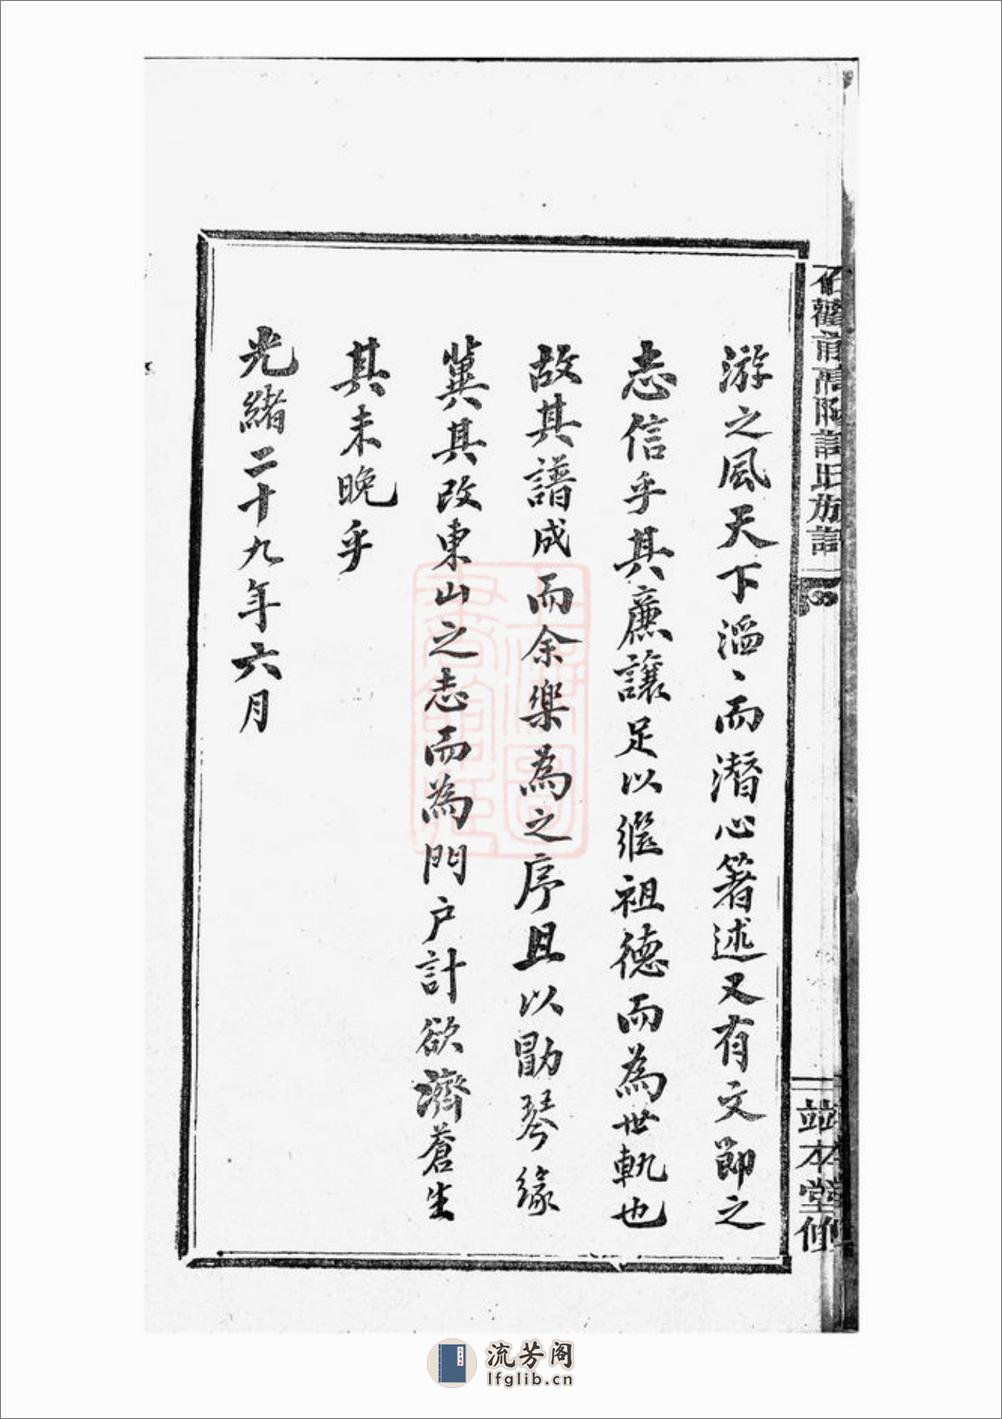 游之風天下滔〻而潛心箸述又有文節之
志信乎其廉讓足以繼祖德而為世軌也
故其譜成而余樂為之序且以勖琴緣
冀其改東山之志而為門户計欲濟蒼生
其未晚乎
光緒二十九年六月
許氏族譜
堂修
上海圖書館藏
流芳阁
lfglib.cn